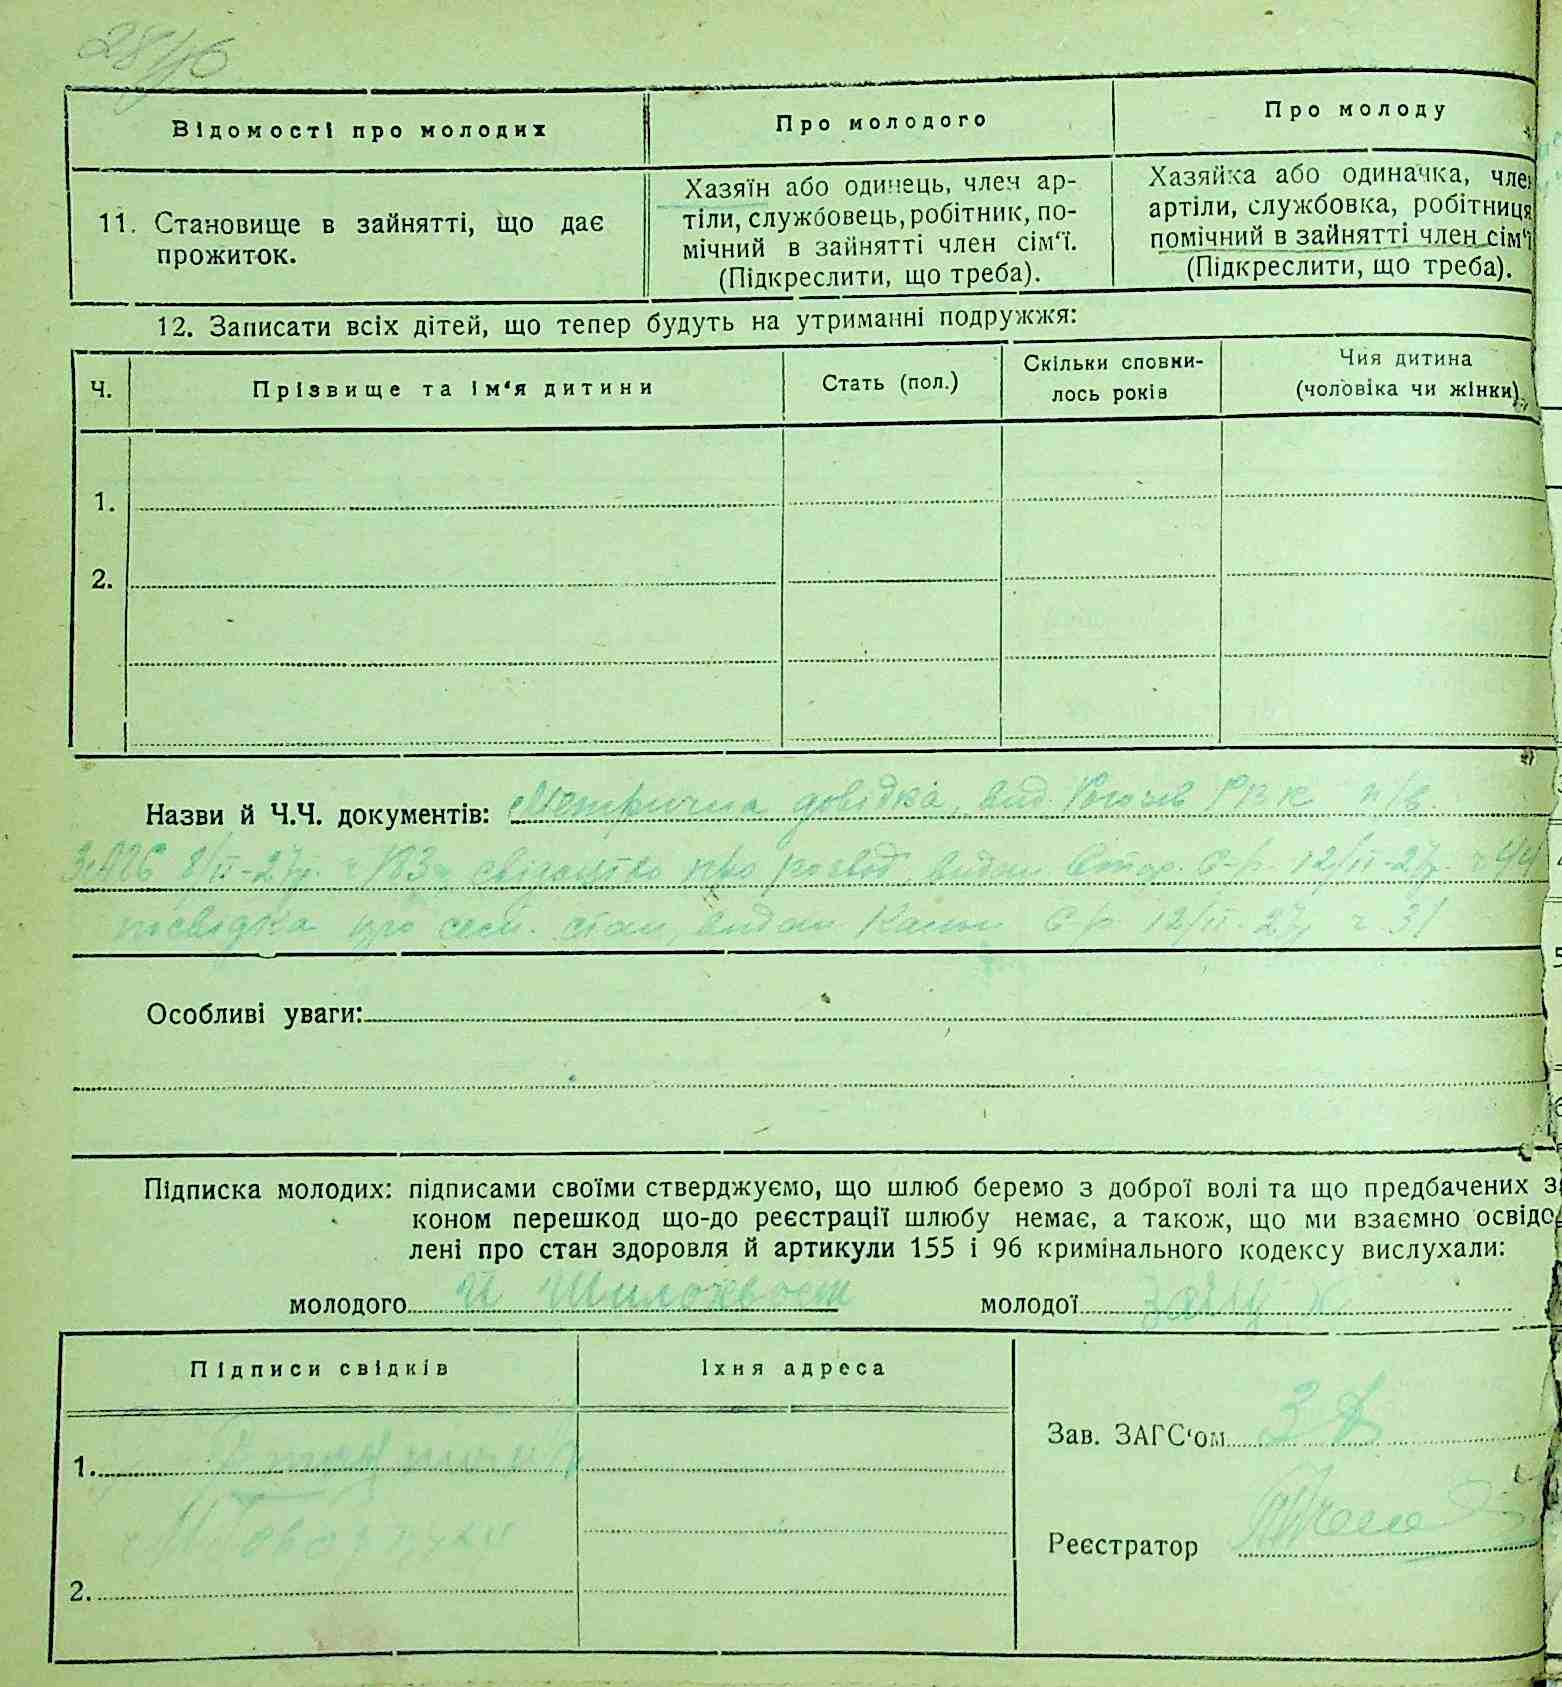 28/16
Відомості про молодих
Про молодого
Про молоду
11. Становище в зайнятті, що дає
прожиток.
Хазяїн або одинець, член ар-
тіли, службовець, робітник, по-
мічний в зайнятті член сім'ї.
(Підкреслити, що треба).
Хазяйка або одиначка, член
артіли, службовка, робітниця
помічний в зайнятті член сім'ї
(Підкреслити, що треба).
12. Записати всіх дітей, що тепер будуть на утриманні подружжя:
Ч.
Прізвище та ім'я дитини
Стать (пол.)
Скільки сповни-
лось років
Чия дитина
(чоловіка чи жінки)
1.
2.
Назви й Ч.Ч. документів: Метрична довідка, вид. п/в
8/II-27р. ч 183 свідоцтво про розвод, видан С-р. 12/II-27р. ч 44
посвідка про сем. стан, видан С/р 12/II-27р ч 31
Особливі уваги:
Підписка молодих: підписами своїми стверджуємо, що шлюб беремо з доброї волі та що предбачених з
коном перешкод що-до реєстрації шлюбу немає, а також, що ми взаємно освідо
лені про стан здоровля й артикули 155 і 96 кримінального кодексу вислухали:
молодого И Шилохвост молодої
Підписи свідків
Їхня адреса
1.
2.
Зав. ЗАГС'ом
Реєстратор